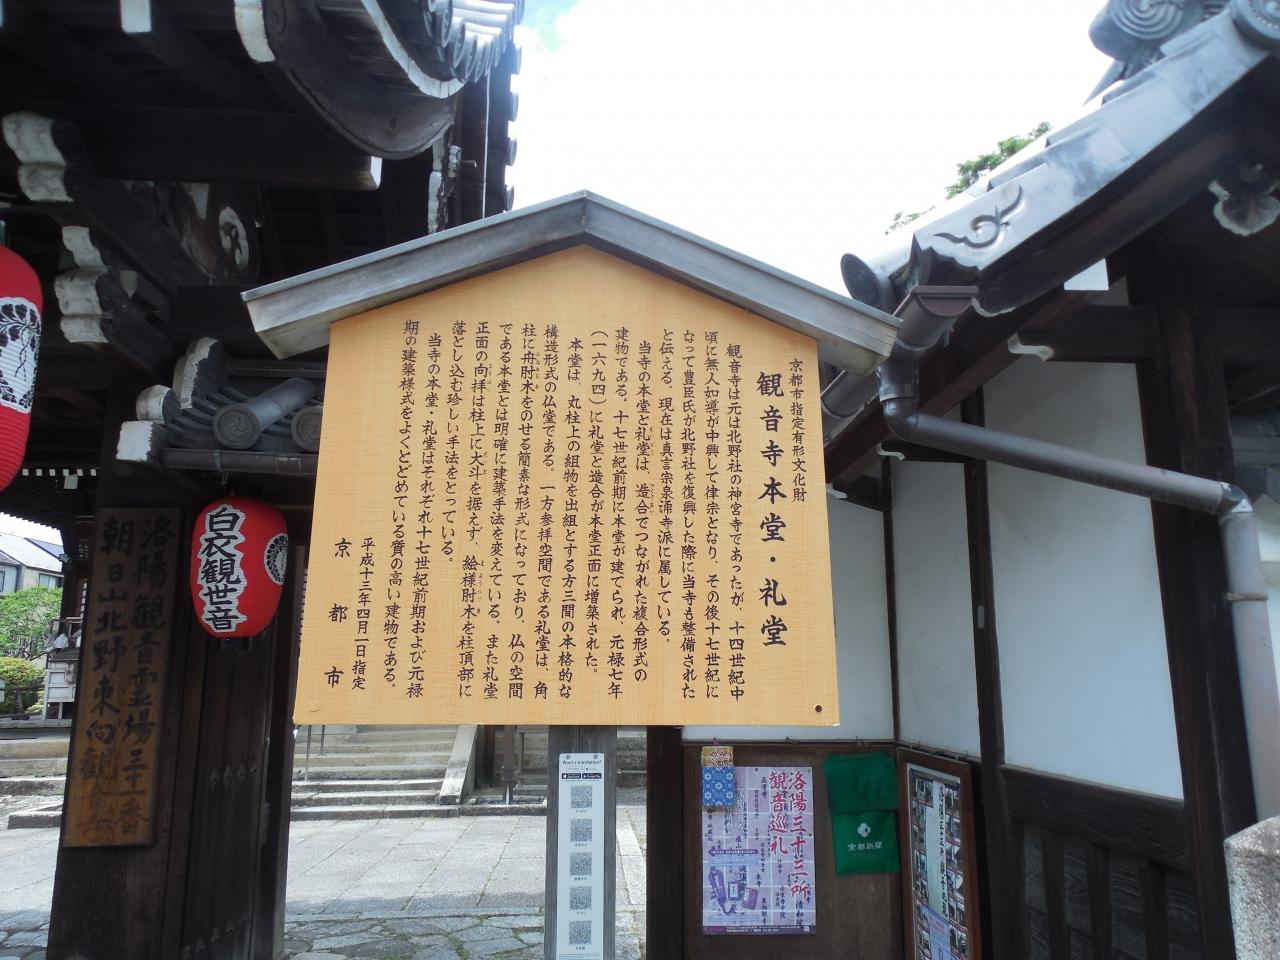 京都市指定有形文化財
観音寺本堂・礼堂
観音寺は元は北野社の神宮寺であったが、十四世紀中
頃に無人如導が中興して律宗となり、その後十七世紀に
なって豊臣氏が北野社を復興した際に当寺も整備された
と伝える。現在は真言宗泉涌寺派に属している。
当寺の本堂と礼堂は、造合でつながれた複合形式の
建物である。十七世紀前期に本堂が建てられ、元禄七年
(一六九四)に礼堂と造合が本堂正面に増築された。
本堂は、丸柱上の組物を出組とする方三間の本格的な
構造形式の仏堂である。一方参拝空間である礼堂は、角
柱に舟肘木をのせる簡素な形式になっており、仏の空間
である本堂とは明確に建築手法を変えている。また礼堂
正面の向拝は柱上に大斗を据えず、絵様肘木を柱頂部に
落とし込む珍しい手法をとっている。
当寺の本堂・礼堂はそれぞれ十七世紀前期および元禄
期の建築様式をよくとどめている質の高い建物である。
平成十三年四月一日指定
京都市
白衣観世音
洛陽観音霊場三十一番
朝日山北野東向観音
洛陽三十三所
観音巡礼
清和院
京都新聞
Want a translation?